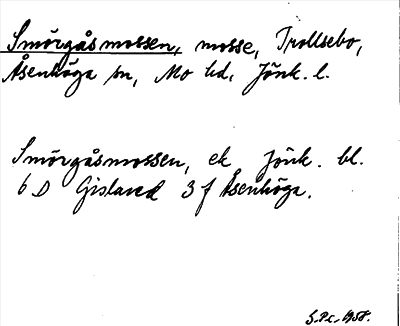 Smörgåsmossen, mosse, Trollsebo,
Åsenhöga sn, Mo hd, Jönk. l.
Smörgåsmossen, ek Jönk. bl.
6 D Gislaved 3 f Åsenhöga.
1958.